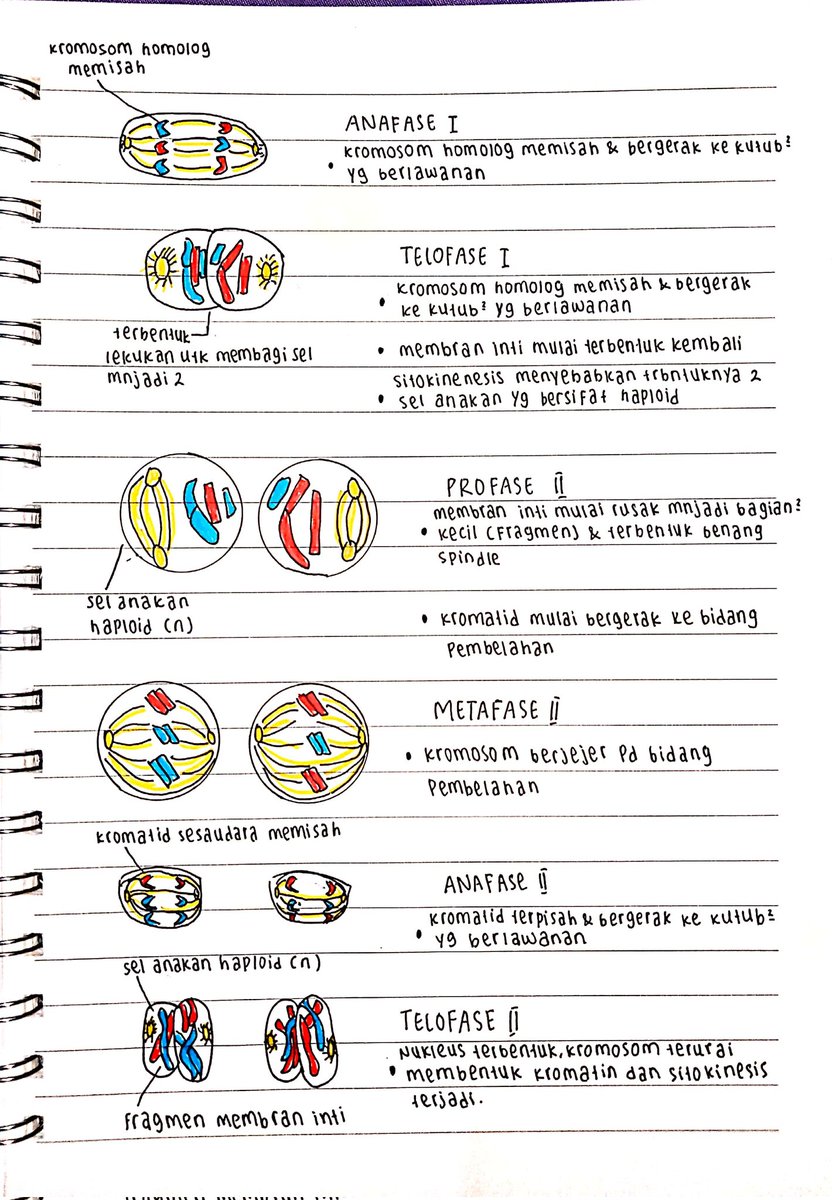 kromosom homolog
memisah
ANAFASE I
kromosom homolog memisah & bergerak ke kutub²
• yg berlawanan
TELOFASE I
kromosom homolog memisah & bergerak
• ke kutub² yg berlawanan
terbentuk
lekukan utk membagi sel
mnjadi 2
• membran inti mulai terbentuk kembali
sitokinenesis menyebabkan trbntuknya 2
• sel anakan yg bersifat haploid
PROFASE II
membran inti mulai rusak mnjadi bagian²
• kecil (fragmen) & terbentuk benang
spindle
sel anakan
haploid (n)
• kromatid mulai bergerak ke bidang
pembelahan
METAFASE II
• kromosom berjejer pd bidang
pembelahan
kromatid sesaudara memisah
ANAFASE II
kromatid terpisah & bergerak ke kutub²
• yg berlawanan
sel anakan haploid (n)
TELOFASE II
Nukleus terbentuk, kromosom terurai
• membentuk kromatin dan sitokinesis
terjadi.
Fragmen membran inti